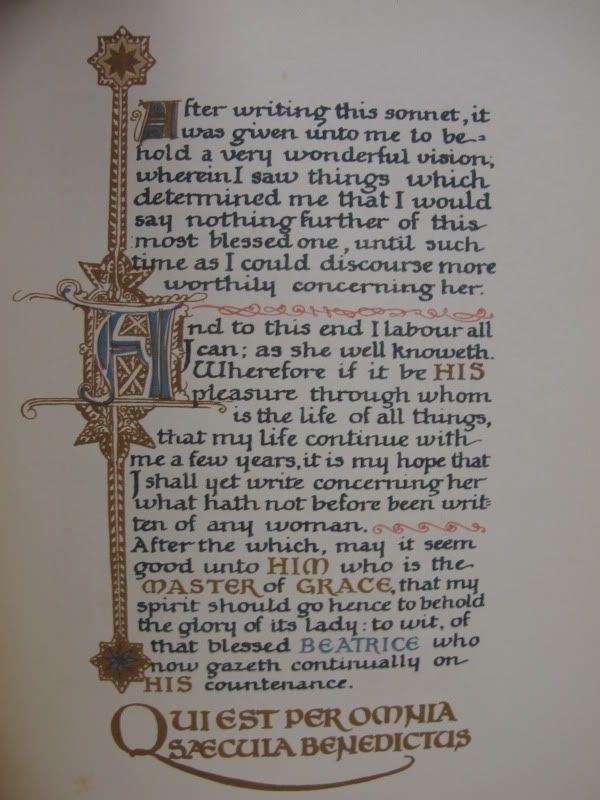 After writing this sonnet, it
was given unto me to be=
hold a very wonderful vision;
wherein I saw things which
determined me that I would
say nothing further of this
most blessed one, until such
time as I could discourse more
worthily concerning her.
And to this end I labour all
I can; as she well knoweth.
Wherefore if it be HIS
pleasure through whom
is the life of all things,
that my life continue with
me a few years, it is my hope that
I shall yet write concerning her
what hath not before been writ=
ten of any woman.
After the which, may it seem
good unto HIM who is the
MASTER of GRACE, that my
spirit should go hence to behold
the glory of its lady: to wit, of
that blessed BEATRICE who
now gazeth continually on
HIS countenance.
QUI EST PER OMNIA
SÆCULA BENEDICTUS